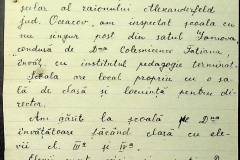 școlar al raionului Alexanderfeld
jud. Oceacov, am inspectat școala cu
un singur post din satul
condusă de D-na Colesnicenco Tatiana,
învăț. cu institutul pedagogic terminat.
Școala are local propriu cu o sa-
lă de clasă și locuință pentru di-
rector.
Am găsit la școală pe D-na
învățătoare făcând clasă cu ele-
vii cl. III-a și IV-a.